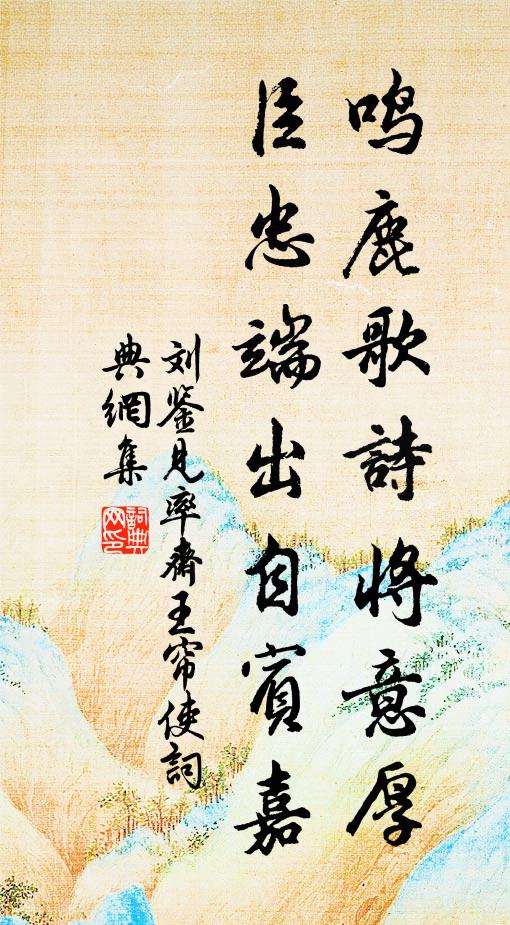 鸣鹿歌詩将意厚
臣忠端出自賓嘉
刘鉴見率齋王帘使詞
典網集
詞典网印